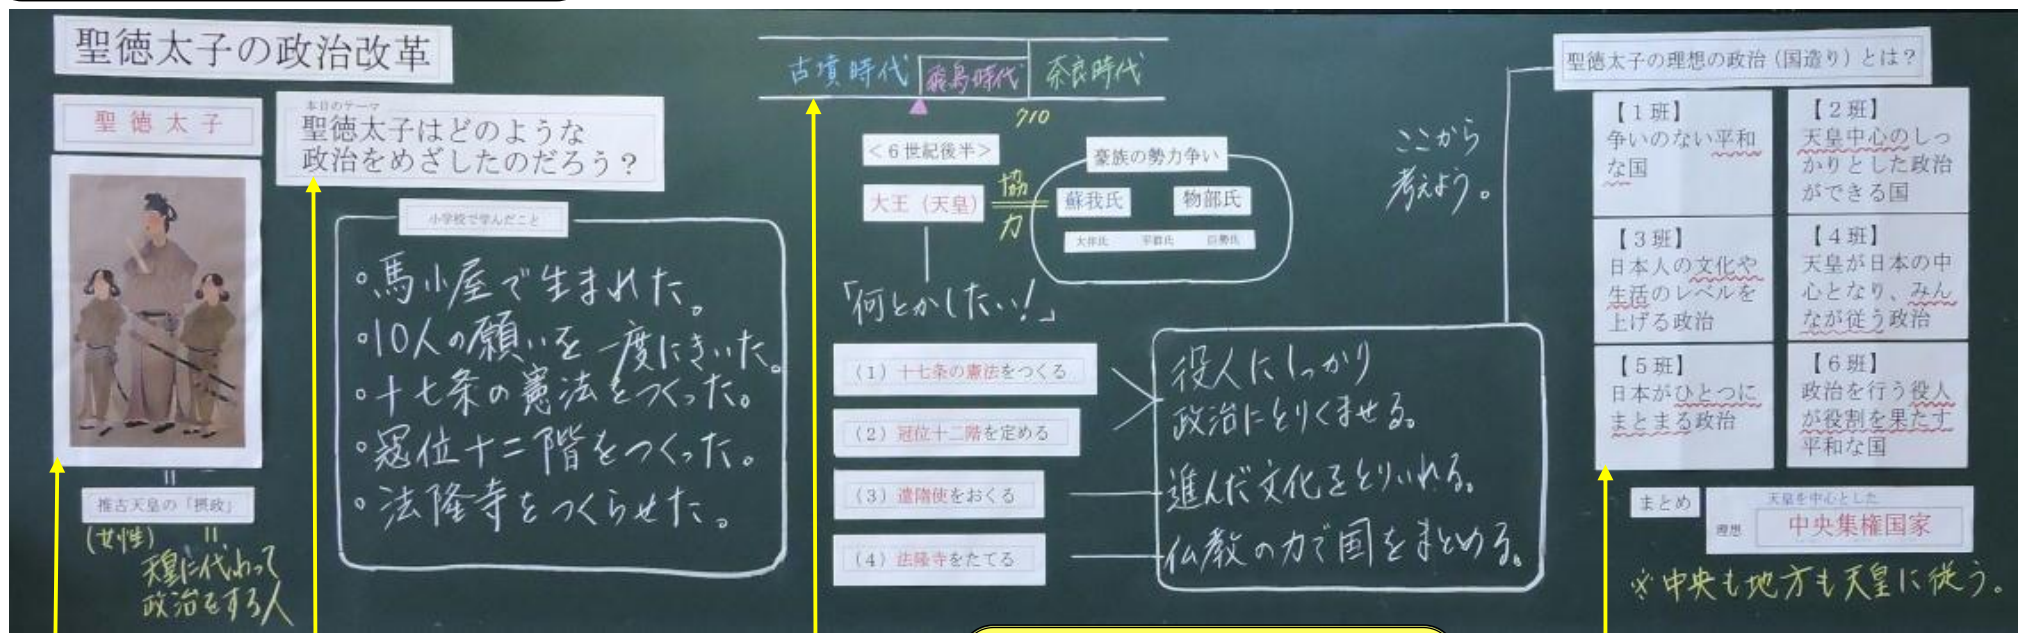 聖徳太子の政治改革
聖徳太子
推古天皇の「摂政」
(女性)
天皇に代わって
政治をする人
本日のテーマ
聖徳太子はどのような
政治をめざしたのだろう？
小学校で学んだこと
。馬小屋で生まれた。
。10人の願いを一度にきいた。
。十七条の憲法をつくった。
。冠位十二階をつくった。
。法隆寺をつくらせた。
古墳時代 飛鳥時代 奈良時代
710
＜６世紀後半＞
大王（天皇）
協
力
豪族の勢力争い
蘇我氏 物部氏
大伴氏 平群氏 巨勢氏
「何とかしたい！」
（1）十七条の憲法をつくる
（2）冠位十二階を定める
（3）遣隋使をおくる
（4）法隆寺をたてる
役人にしっかり
政治にとりくませる。
進んだ文化をとりいれる。
仏教の力で国をまとめる。
ここから
考えよう。
聖徳太子の理想の政治（国造り）とは？
【１班】
争いのない平和
な国
【２班】
天皇中心のしっ
かりとした政治
ができる国
【３班】
日本人の文化や
生活のレベルを
上げる政治
【４班】
天皇が日本の中
心となり、みん
なが従う政治
【５班】
日本がひとつに
まとまる政治
【６班】
政治を行う役人
が役割を果たす
平和な国
まとめ
天皇を中心とした
理想 中央集権国家
※中央も地方も天皇に従う。